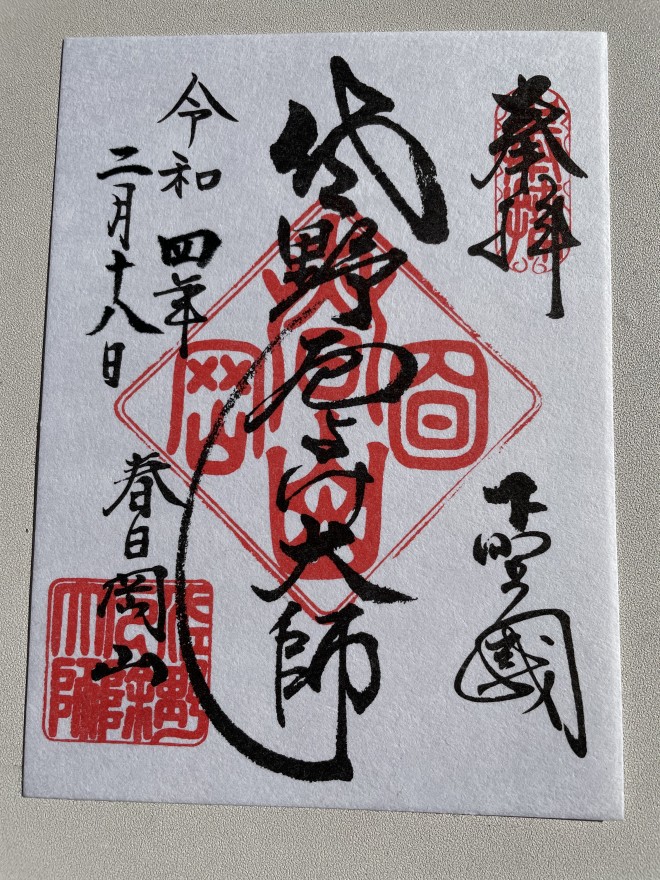 奉拝
下野國
佐野厄よけ大師
令和四年
二月十八日
春日岡山